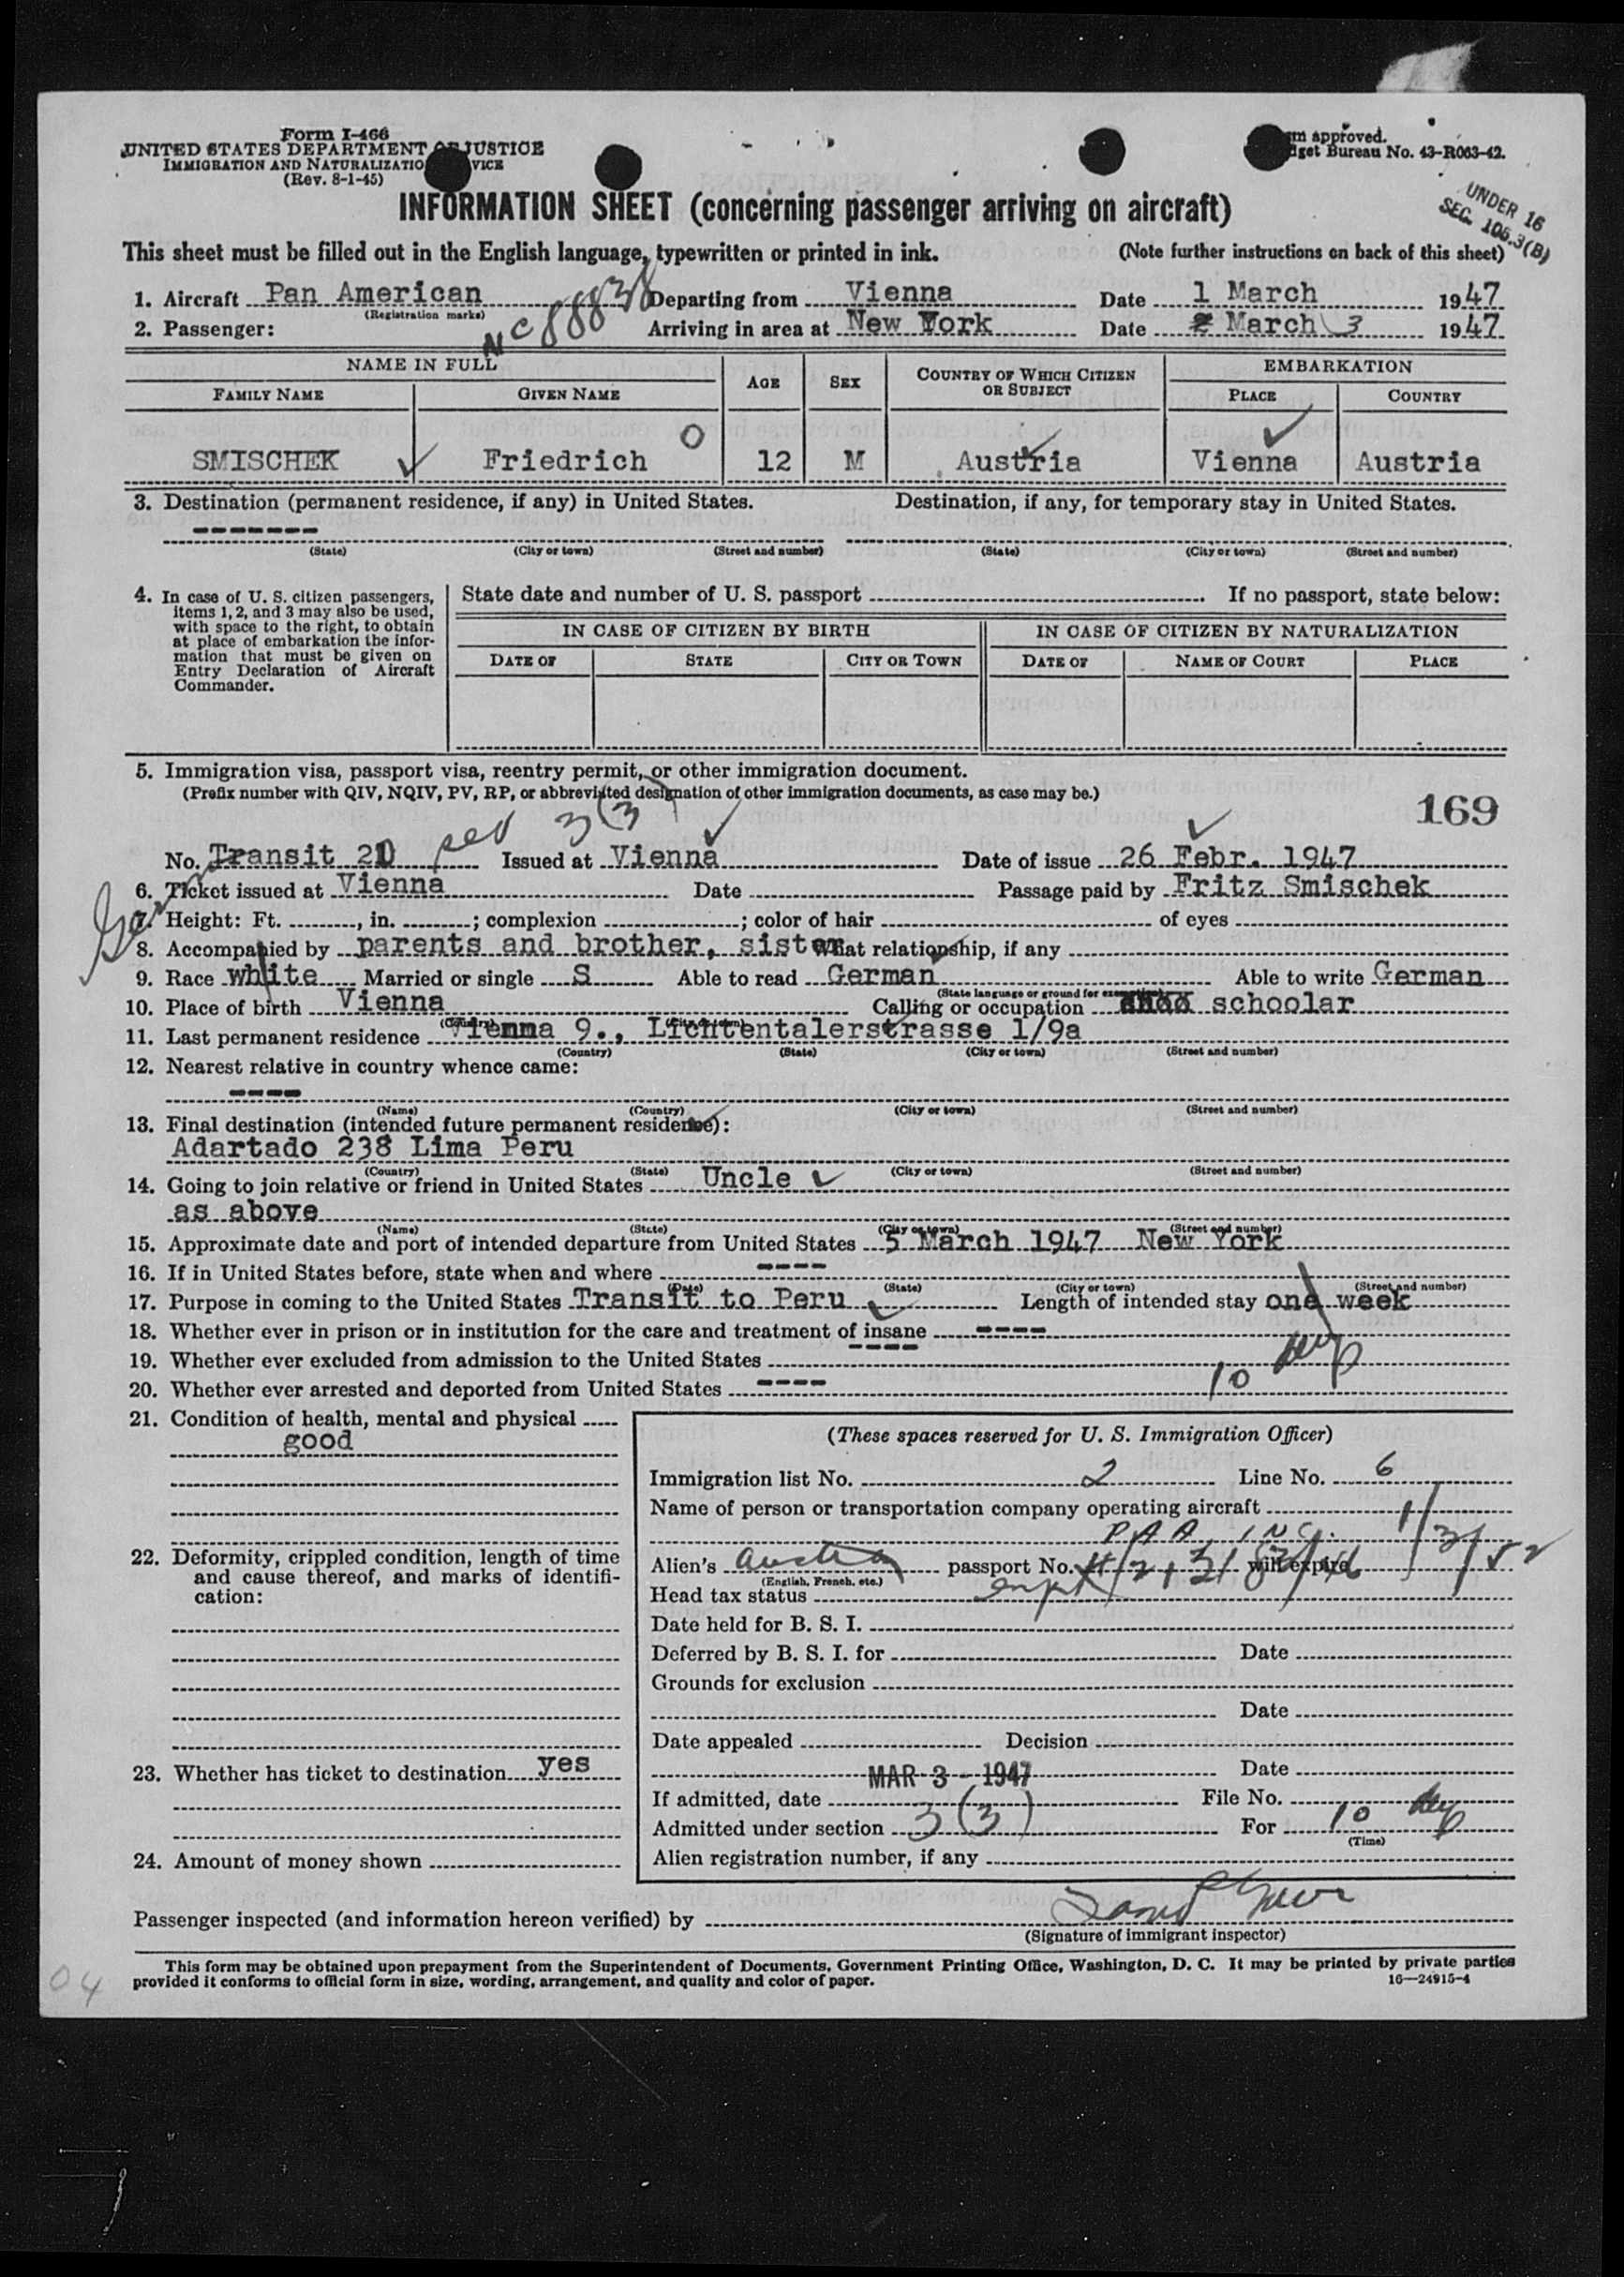 Form I-466
UNITED STATES DEPARTMENT OF JUSTICE
IMMIGRATION AND NATURALIZATIO VICE
(Rev. 8-1-45)
rm approved.
dget Bureau No. 43-R063-42.
UNDER 16
SEC. 105.3(B)
INFORMATION SHEET (concerning passenger arriving on aircraft)
This sheet must be filled out in the English language, typewritten or printed in ink. (Note further instructions on back of this sheet)
1. Aircraft Pan American Departing from Vienna Date 1 March 1947
(Registration marks)
NC 88838
2. Passenger: Arriving in area at New York Date March 3 1947
NAME IN FULL AGE SEX COUNTRY OF WHICH CITIZEN OR SUBJECT EMBARKATION
FAMILY NAME GIVEN NAME PLACE COUNTRY
SMISCHEK Friedrich 0 12 M Austria Vienna Austria
3. Destination (permanent residence, if any) in United States. Destination, if any, for temporary stay in United States.
-------
(State) (City or town) (Street and number) (State) (City or town) (Street and number)
4. In case of U. S. citizen passengers,
items 1, 2, and 3 may also be used,
with space to the right, to obtain
at place of embarkation the infor-
mation that must be given on
Entry Declaration of Aircraft
Commander.
State date and number of U. S. passport . If no passport, state below:
IN CASE OF CITIZEN BY BIRTH IN CASE OF CITIZEN BY NATURALIZATION
DATE OF STATE CITY OR TOWN DATE OF NAME OF COURT PLACE
5. Immigration visa, passport visa, reentry permit, or other immigration document.
(Prefix number with QIV, NQIV, PV, RP, or abbreviated designation of other immigration documents, as case may be.)
169
3(3)
No. Transit 20 Issued at Vienna Date of issue 26 Febr. 1947
6. Ticket issued at Vienna Date Passage paid by Fritz Smischek
German
7. Height: Ft. , in. ; complexion ; color of hair of eyes
8. Accompanied by parents and brother, sister What relationship, if any
9. Race white Married or single S Able to read German Able to write German
(State language or ground for exemption)
10. Place of birth Vienna Calling or occupation schoolar
(Country) (City or town)
11. Last permanent residence Vienna 9., Lichtentalerstrasse 1/9a
(Country) (State) (City or town) (Street and number)
12. Nearest relative in country whence came:
----
(Name) (Country) (City or town) (Street and number)
13. Final destination (intended future permanent residence):
Adartado 238 Lima Peru
(Country) (State) (City or town) (Street and number)
14. Going to join relative or friend in United States Uncle
as above
(Name) (State) (City or town) (Street and number)
15. Approximate date and port of intended departure from United States 5 March 1947 New York
16. If in United States before, state when and where ----
(Date) (State) (City or town) (Street and number)
17. Purpose in coming to the United States Transit to Peru Length of intended stay one week
18. Whether ever in prison or in institution for the care and treatment of insane ----
19. Whether ever excluded from admission to the United States ----
10 days
20. Whether ever arrested and deported from United States ----
21. Condition of health, mental and physical
good
22. Deformity, crippled condition, length of time
and cause thereof, and marks of identifi-
cation:
23. Whether has ticket to destination yes
24. Amount of money shown
(These spaces reserved for U. S. Immigration Officer)
Immigration list No. 2 Line No. 6
Name of person or transportation company operating aircraft
PAA INC.
Alien's Austria passport No. will expire 1/31/52
(English, French, etc.)
Head tax status
Date held for B. S. I.
Deferred by B. S. I. for Date
Grounds for exclusion
Date
Date appealed Decision
Date
MAR 3 - 1947
If admitted, date File No.
Admitted under section 3(3) For 10 days
(Time)
Alien registration number, if any
Passenger inspected (and information hereon verified) by
(Signature of immigrant inspector)
This form may be obtained upon prepayment from the Superintendent of Documents, Government Printing Office, Washington, D. C. It may be printed by private parties
provided it conforms to official form in size, wording, arrangement, and quality and color of paper. 16—24915-4
04